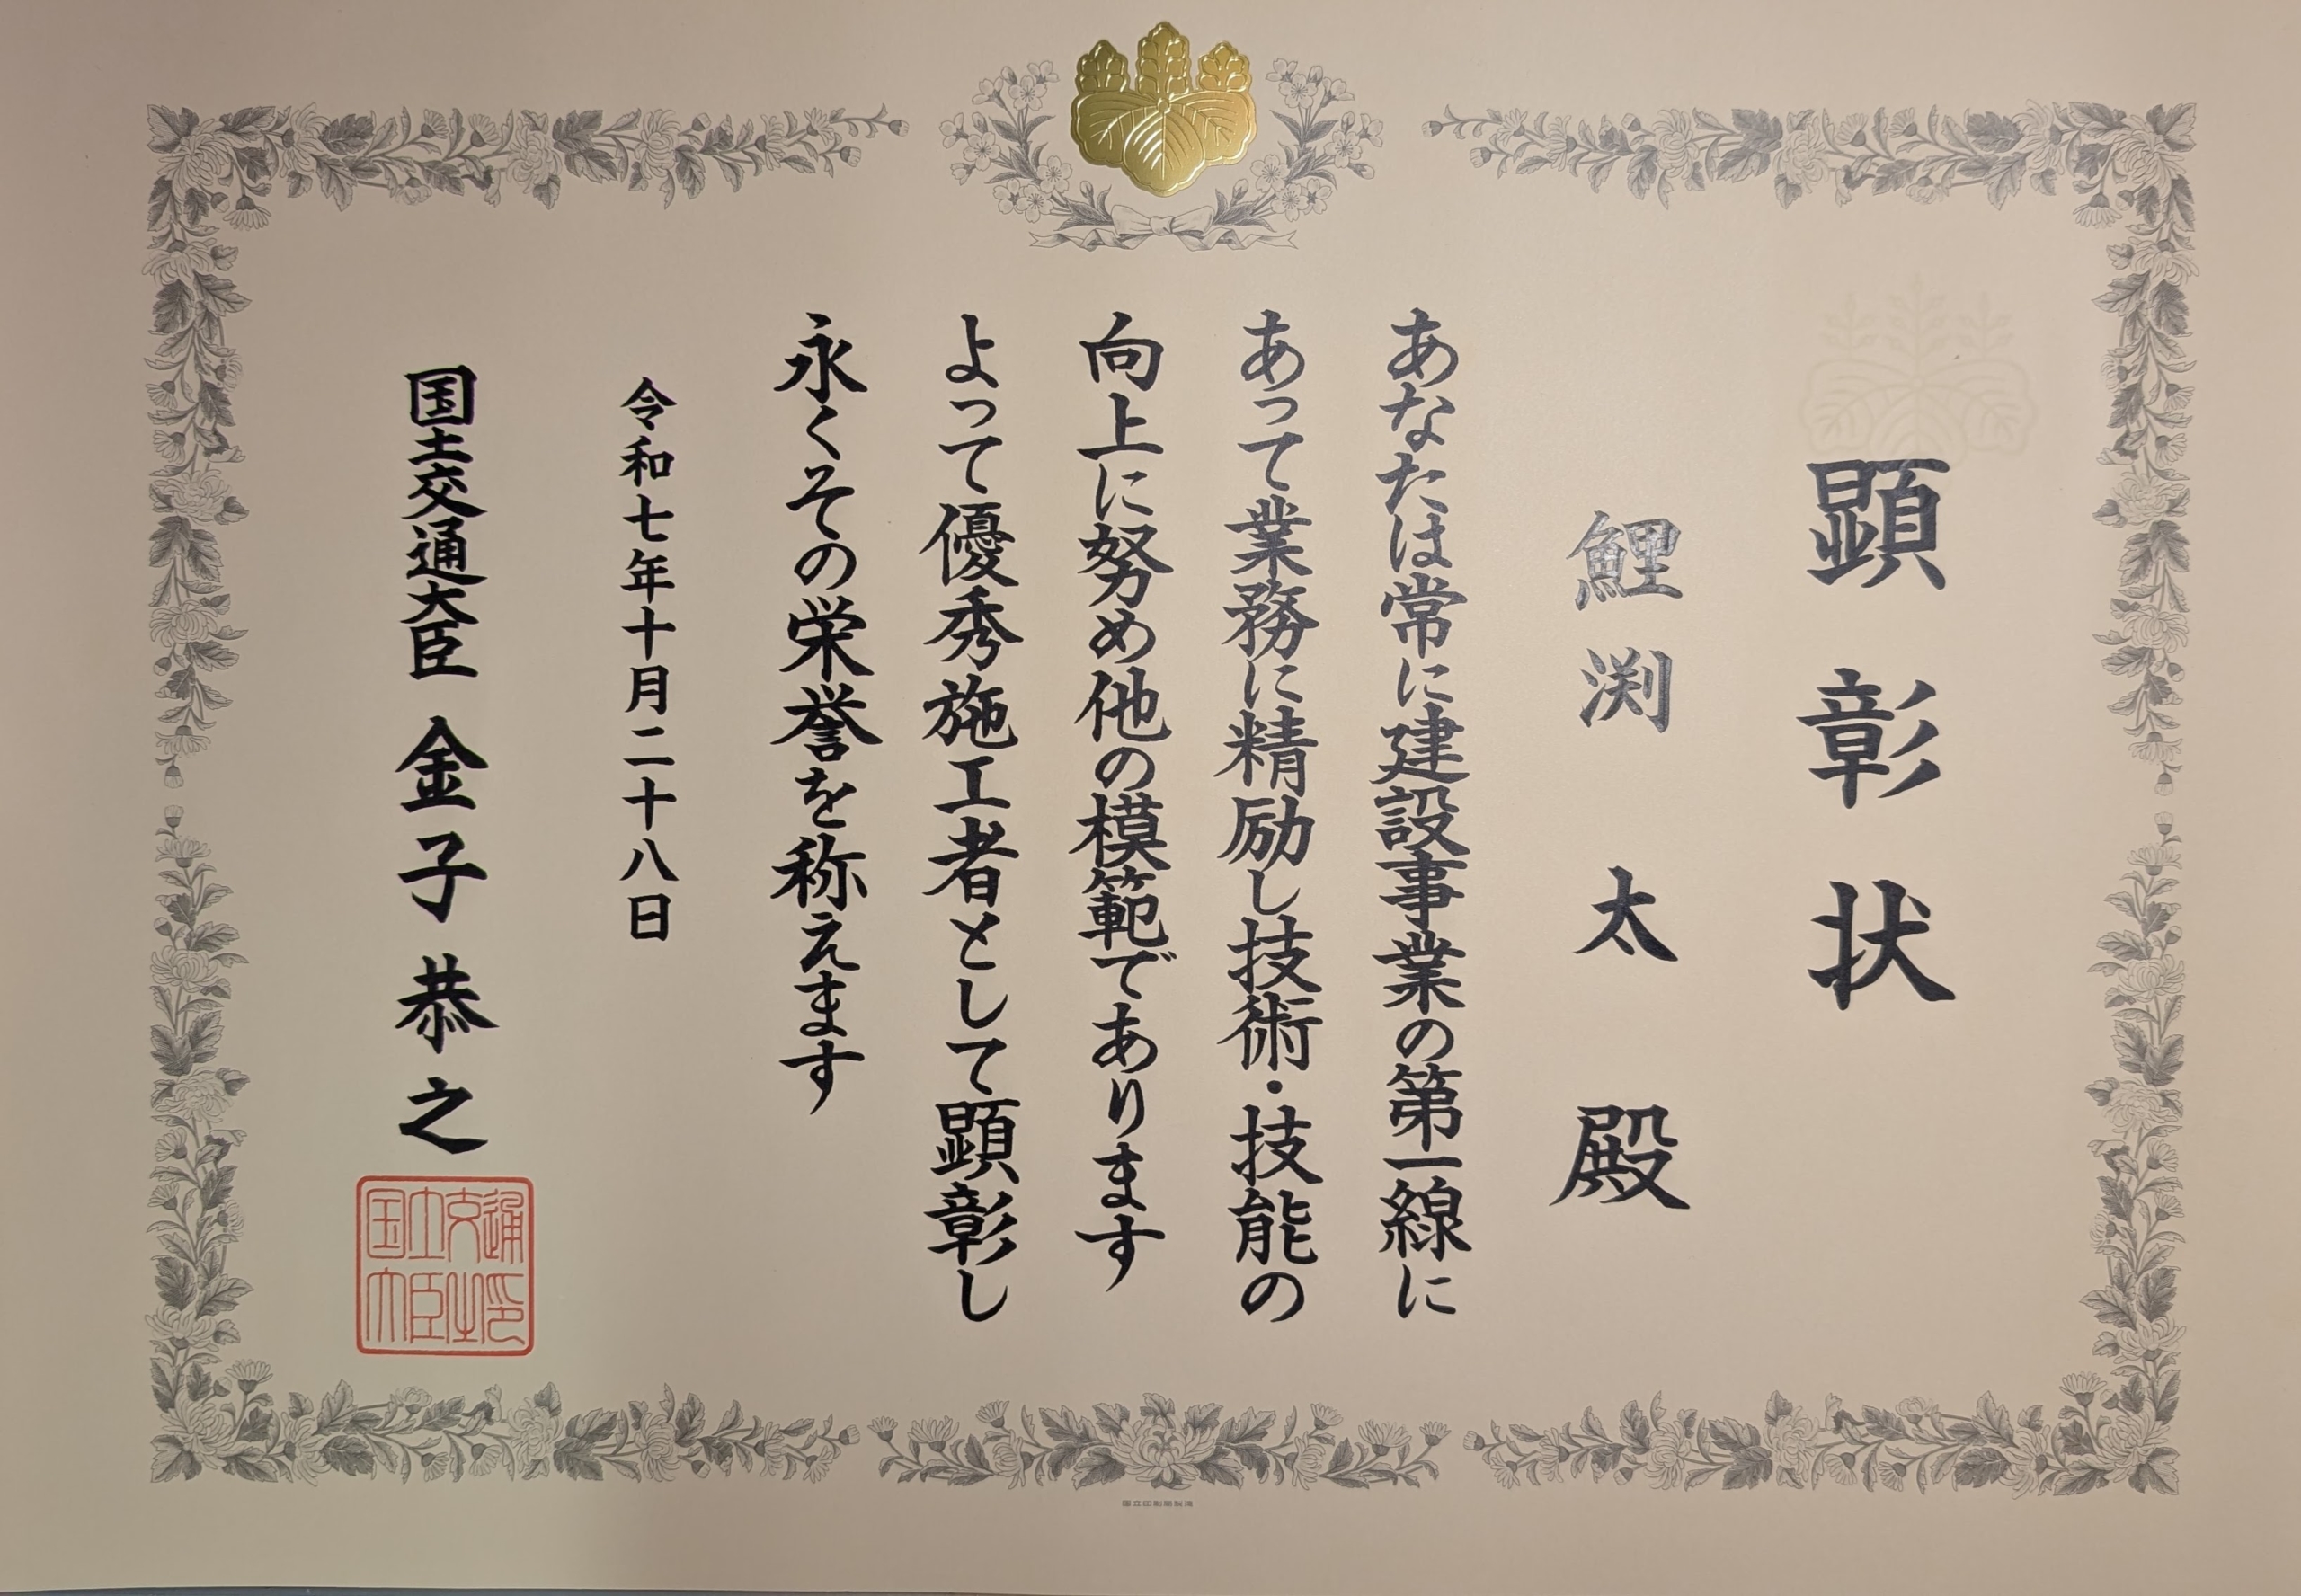 顕彰状
鯉渕 太 殿
あなたは常に建設事業の第一線に
あって業務に精励し技術・技能の
向上に努め他の模範であります
よって優秀施工者として顕彰し
永くその栄誉を称えます
令和七年十月二十八日
国土交通大臣 金子恭之
国土交通
大臣之印
国立印刷局製造